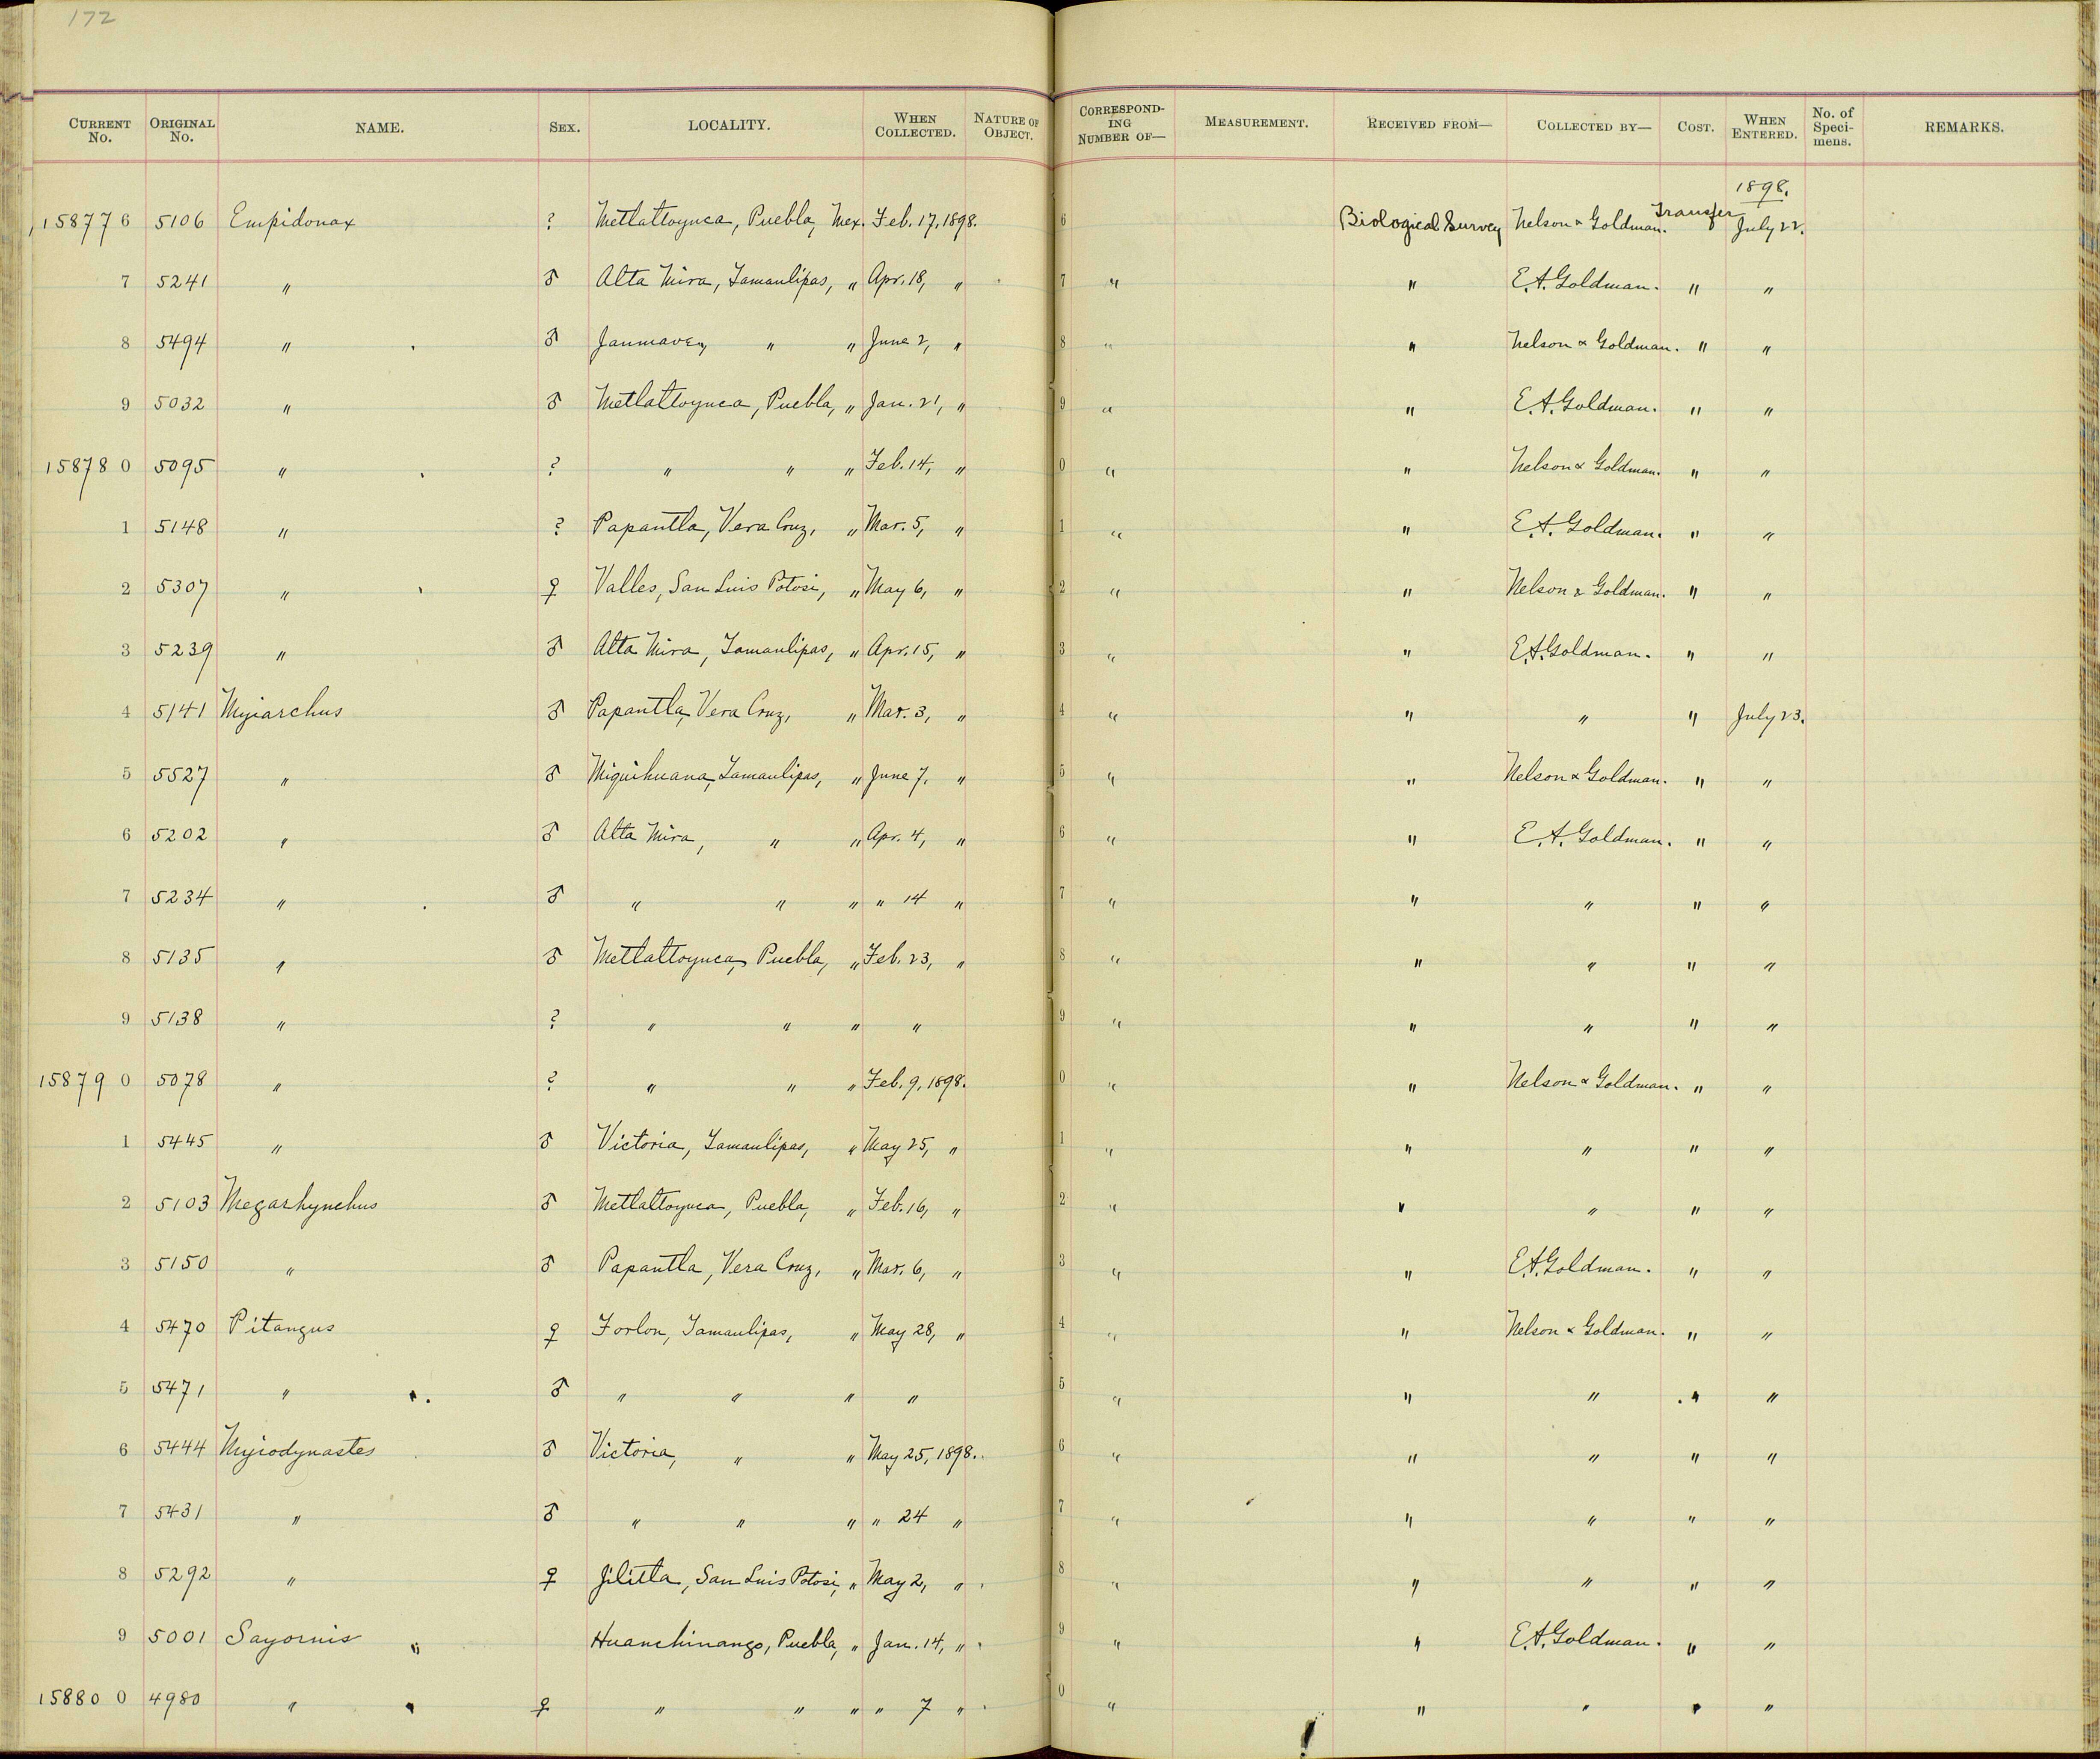 172
CURRENT No. ORIGINAL No. NAME. SEX. LOCALITY. WHEN COLLECTED. NATURE OF OBJECT. CORRESPONDING NUMBER OF— MEASUREMENT. RECEIVED FROM— COLLECTED BY— COST. WHEN ENTERED. No. of Specimens. REMARKS.
1898.
158776 5106 Empidonax ? Metlaltoyuca, Puebla, Mex. Feb. 17, 1898. 6 Biological Survey Nelson & Goldman. Transfer July 22.
7 5241 " ♂ Alta Mira, Tamaulipas, " Apr. 18, " 7 " " E.A. Goldman. " "
8 5494 " ♂ Jaumavey " " June 2, " 8 " " Nelson & Goldman. " "
9 5032 " ♂ Metlaltoyuca, Puebla, " Jan. 21, " 9 " " E.A. Goldman. " "
158780 5095 " ? " " " Feb. 14, " 0 " " Nelson & Goldman. " "
1 5148 " ? Papantla, Vera Cruz, " Mar. 5, " 1 " " E.A. Goldman. " "
2 5307 " ♀ Valles, San Luis Potosi, " May 6, " 2 " " Nelson & Goldman. " "
3 5239 " ♂ Alta Mira, Tamaulipas, " Apr. 15, " 3 " " E.A. Goldman. " "
4 5141 Myiarchus ♂ Papantla, Vera Cruz, " Mar. 3, " 4 " " " " July 23.
5 5527 " ♂ Miquihuana, Tamaulipas, " June 7, " 5 " " Nelson & Goldman. " "
6 5202 " ♂ Alta Mira, " " Apr. 4, " 6 " " E.A. Goldman. " "
7 5234 " ♂ " " " " 14 " 7 " " " " "
8 5135 " ♂ Metlaltoyuca, Puebla, " Feb. 23, " 8 " " " " "
9 5138 " ? " " " " 9 " " " " "
158790 5078 " ? " " " Feb. 9, 1898. 0 " " Nelson & Goldman. " "
1 5445 " ♂ Victoria, Tamaulipas, " May 25, " 1 " " " " "
2 5103 Megarhynchus ♂ Metlaltoyuca, Puebla, " Feb. 16, " 2 " " " " "
3 5150 " ♂ Papantla, Vera Cruz, " Mar. 6, " 3 " " E.A. Goldman. " "
4 5470 Pitangus ♀ Forlon, Tamaulipas, " May 28, " 4 " " Nelson & Goldman. " "
5 5471 " ♂ " " " " 5 " " " " "
6 5444 Myiodynastes ♂ Victoria, " " May 25, 1898. 6 " " " " "
7 5431 " ♂ " " " " 24 " 7 " " " " "
8 5292 " ♀ Jilitla, San Luis Potosi, " May 2, " 8 " " " " "
9 5001 Sayornis " Huauchinango, Puebla, " Jan. 14, " 9 " " E.A. Goldman. " "
158800 4980 " " ♀ " " " " 7 " 0 " " " " "